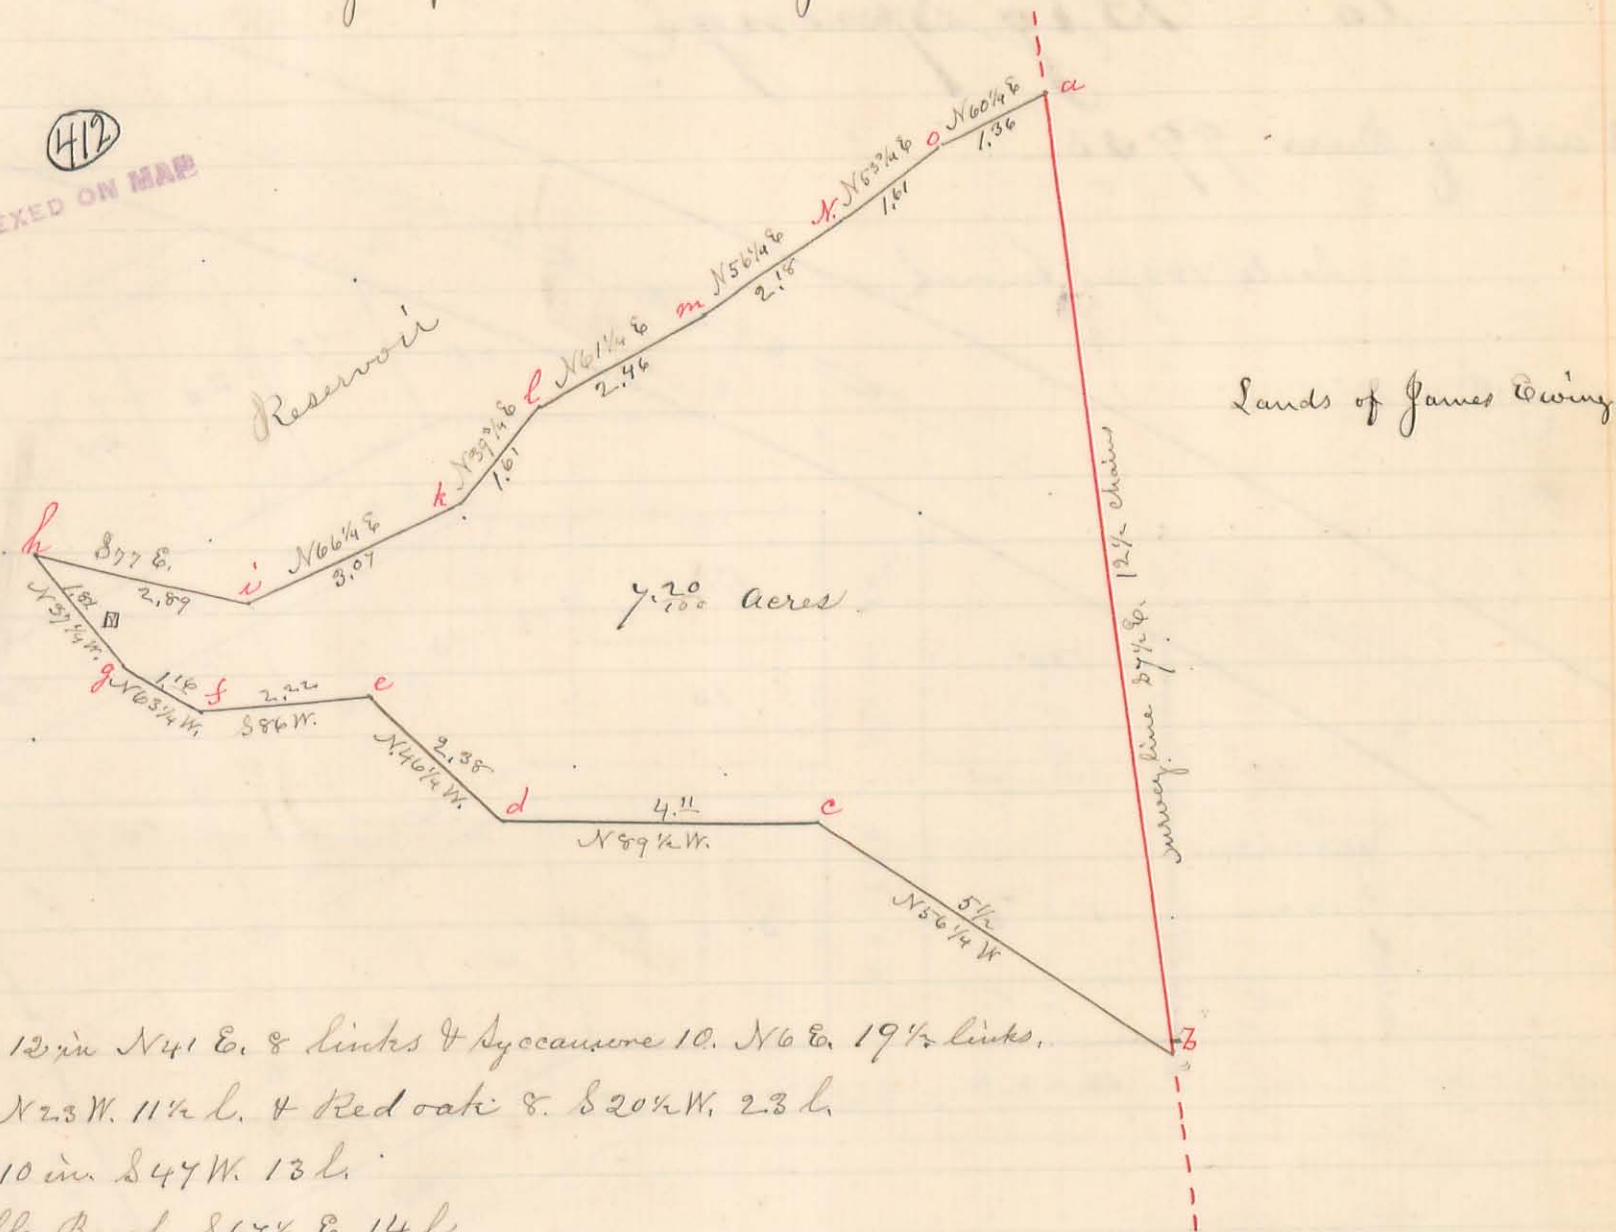 412
EXED ON MAP
a
N60¼E
1.36
o
N53¾E
1.61
N.
N56¼E
2.18
m
N61¼E
2.46
l
N39¾E
1.61
k
N66¼E
3.07
i
S77E.
2.89
h
Reservoir
1.82
N37¼W.
g
1.16
N63¼W.
f
2.22
S86W.
e
2.38
N46¼W.
d
4.11
N89½W.
c
5½
N56¼W
b
survey line S7½E. 12½ chains
Lands of James Ewing
7.20/100 acres.
12 in N41E. 8 links & Syccamore 10. N6E. 19½ links.
N23W. 11½ l. & Red oak 8. S20½W. 23 l.
10 in. S47W. 13 l.
E. 14 l.